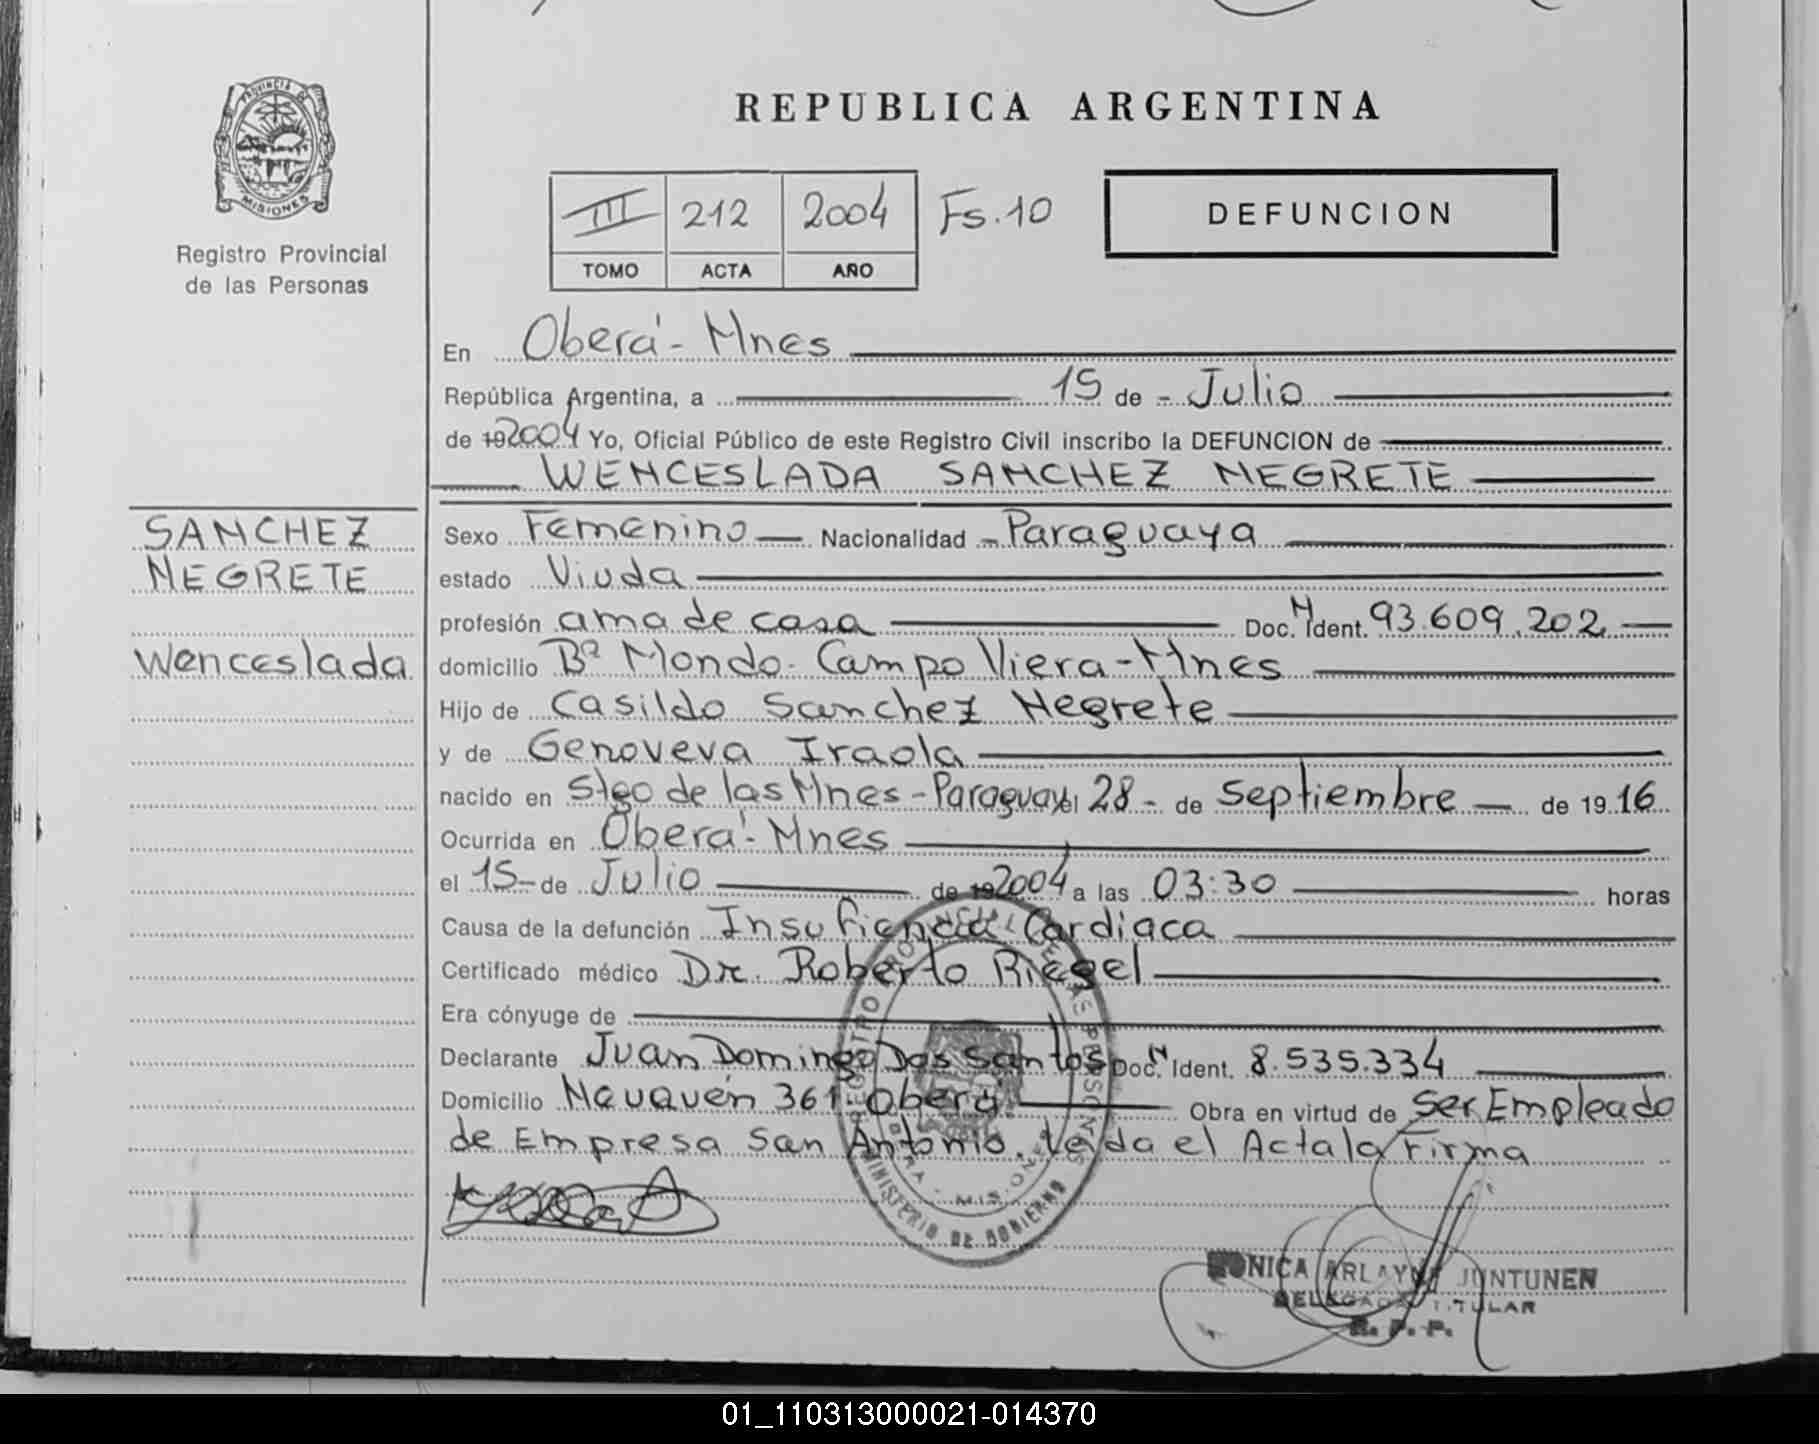 PROVINCIA DE
MISIONES
Registro Provincial
de las Personas
REPUBLICA ARGENTINA
III 212 2004 Fs. 10
TOMO ACTA AÑO
DEFUNCION
En Oberá - Mnes
República Argentina, a 15 de - Julio
de 19 2004 Yo, Oficial Público de este Registro Civil inscribo la DEFUNCION de
WENCESLADA SANCHEZ NEGRETE
SANCHEZ
NEGRETE
Wenceslada
Sexo Femenino Nacionalidad - Paraguaya
estado Viuda
profesión ama de casa Doc. N Ident. 93.609.202
domicilio Bº Mondo - Campo Viera - Mnes
Hijo de Casildo Sanchez Negrete
y de Genoveva Iraola
nacido en Stgo de las Mnes - Paraguay el 28 - de Septiembre de 19 16
Ocurrida en Oberá - Mnes
el 15 - de Julio de 19 2004 a las 03:30 horas
Causa de la defunción Insuficiencia Cardiaca
Certificado médico Dr. Roberto Riegel
Era cónyuge de
Declarante Juan Domingo Dos Santos Doc. N Ident. 8.535.334
Domicilio Neuquén 361 Oberá Obra en virtud de Ser Empleado
de Empresa San Antonio. Leida el Acta la Firma
REGISTRO PROVINCIAL DE LAS PERSONAS
MISIONES
MINISTERIO DE GOBIERNO
MONICA ARLAYNE JUNTUNEN
DELEGADA TITULAR
R. P. P.
01_110313000021-014370